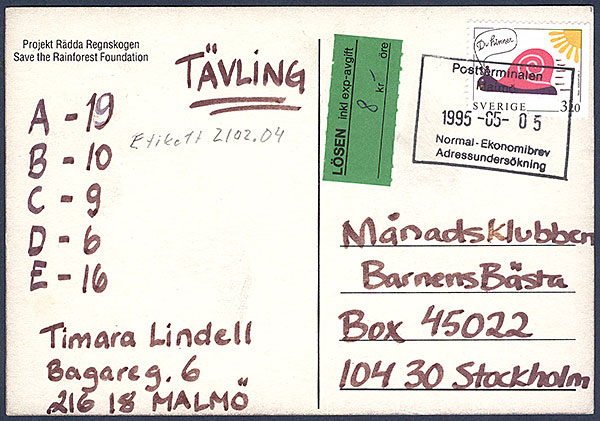 Projekt Rädda Regnskogen
Save the Rainforest Foundation
TÄVLING
A - 19
B - 10
C - 9
D - 6
E - 16
Etikett 2102.04
Timara Lindell
Bagareg. 6
216 18 MALMÖ
LÖSEN inkl exp-avgift
8 kr - öre
Du hinner
SVERIGE 320
Postterminalen
Malmö
1995 -05- 05
Normal - Ekonomibrev
Adressundersökning
Månadsklubben
Barnens Bästa
Box 45022
104 30 Stockholm